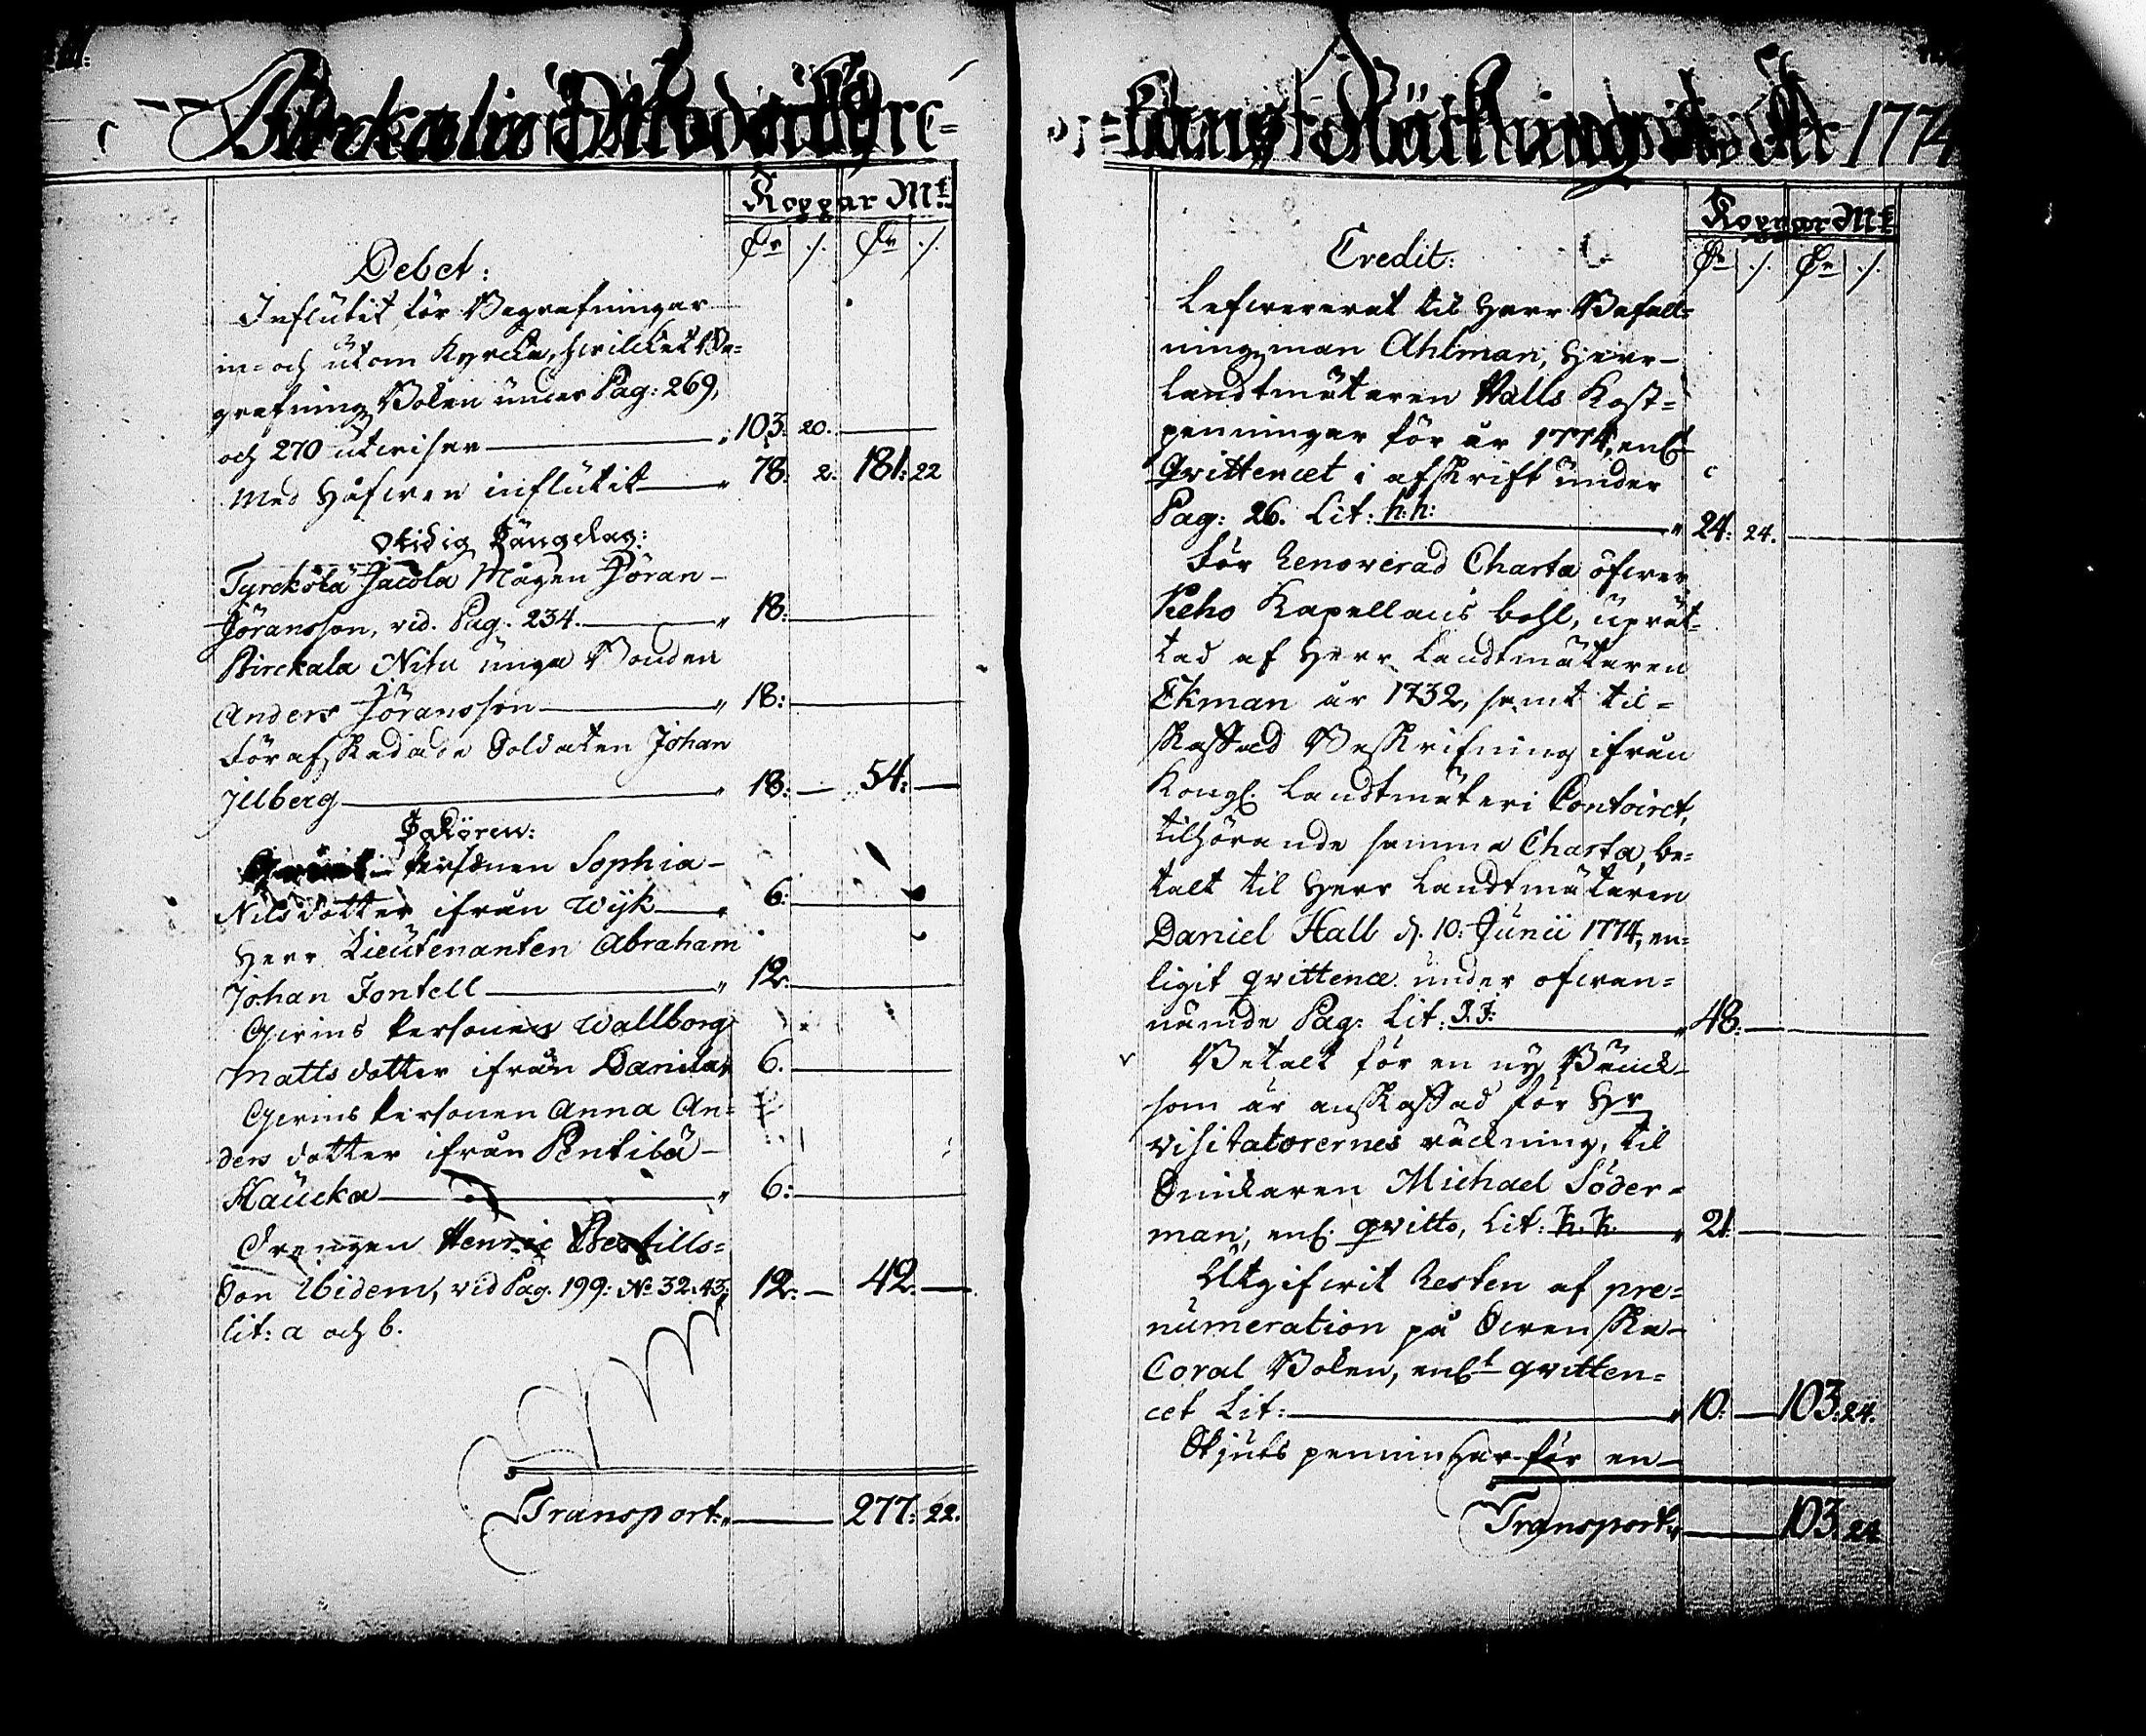 Birckala
Koppar Mt.
Dr ./. Dr ./.
Debet:
Influtit för Begrafningar
in- och utom Kyrcka, hvilcket Be=
grafnings Boken under Pag: 269,
och 270 utviser 103: 20.
Med Håfwen influtit 78: 2. 181: 22
Otidig Sängelag:
Tyrckölä Jacola Mågen Jöran
Jöransson, vid. Pag. 234. 18:
Birckala Nitu unga Bonden
Anders Jöransson 18:
Förafskedade Soldaten Johan
Illberg 18: — 54: —
Sakören:
personen Sophia
Nilsdotter ifrån Wijk 6:
Herr Lieutenanten Abraham
Johan Fontell 12.
Qwins personen Wallborg
Matts dotter ifrån Danila 6.
Qwins personen Anna An=
ders dotter ifrån Pentilä
Haucka 6:
Drengen Henric Bertills=
Son ibidem, vid Pag. 199: No. 32. 43: 12: — 42. —
lit: a och b.
Transport: 277: 22.
Räkning 1774
Koppar Mt
Dr ./. Dr ./.
Credit:
Lefwererat til Herr Befall=
ningsman Ahlman, Herr
Landtmätaren Halls Kost=
penningar för år 1774, enl.
qvittencet i afskrift under
Pag: 26. Lit: h: h: 24: 24.
För Renoverad Charta öfwer
Keho Kapellans bohl, uprät=
tad af Herr Landtmätaren
Ekman år 1732, samt til=
skaffad Beskrifning ifrån
Kongl. Landtmäteri Contoiret,
tilhörande samma Charta, be=
talt til Herr Landtmätaren
Daniel Hall d. 10: Junii 1774, en=
ligit qvittence under ofwan=
nämde Pag: Lit: J. J: 48:
Betalt för en ny Bänck
som är anskaffad för Hr
Visitatorernes räckning, til
Snickaren Michael Söder=
man, enl. qvitto, Lit: K. K. 21
Utgifwit Resten af pre=
numeration på Swenska
Coral Boken, enl.t qvitten=
cet Lit: 10: — 103: 24.
Skjuts penningar för en
Transport: 103: 24